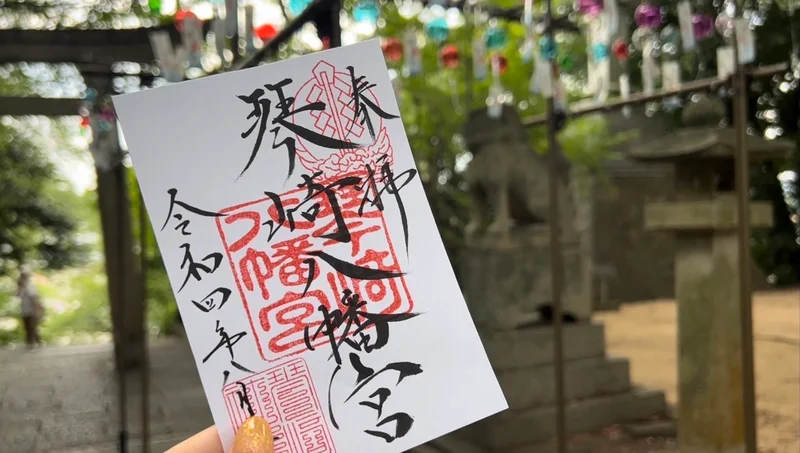 奉拝
琴崎八幡宮
令和四年八月
八幡宮